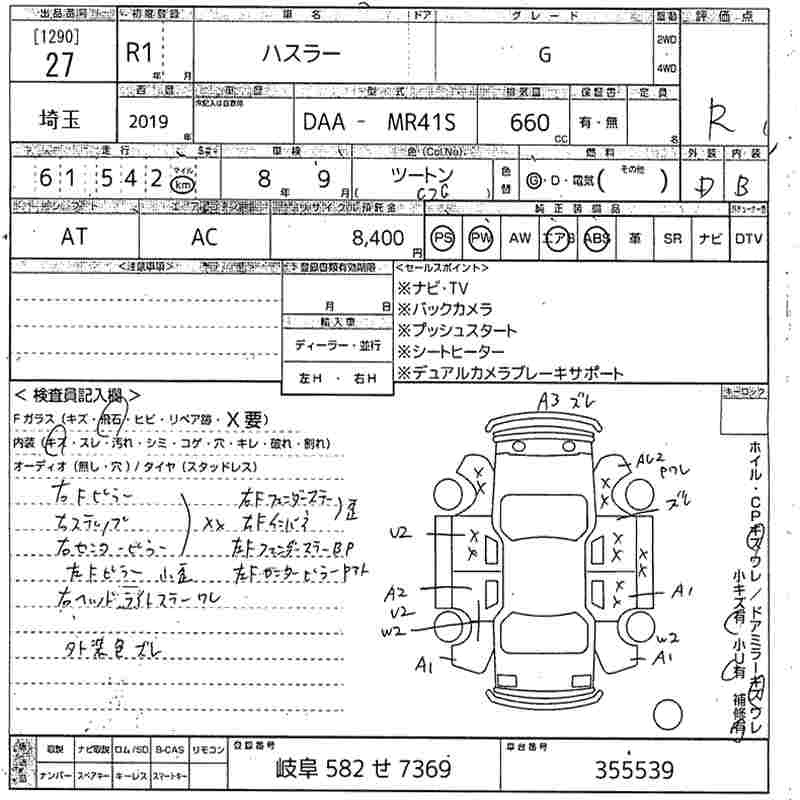 出品番号 初度登録 車名 ドア グレード 駆動 評価点
[1290]
27 R1 年 月 ハスラー G 2WD 4WD R
西暦 車歴 型式 排気量 保証書 定員
埼玉 2019 年 DAA - MR41S 660 CC 有・無 名
走行 車検 色(Col.No) 燃料 外装 内装
61542 マイル km 8年 9月 ツートン C7G 色替 G・D・電気( その他 ) D B
シフト エアコン リサイクル預託金 純正装備品
AT AC 8,400円 PS PW AW エアB ABS 革 SR ナビ DTV
<注意事項> 登録書類有効期限 <セールスポイント>
月 日 ※ナビ・TV
輸入車 ※バックカメラ
ディーラー・並行 ※プッシュスタート
左H ・ 右H ※シートヒーター
※デュアルカメラブレーキサポート
<検査員記入欄> キーロック
Fガラス(キズ・飛石・ヒビ・リペア跡・X要)
内装(キズ・スレ・汚れ・シミ・コゲ・穴・キレ・破れ・割れ)
オーディオ(無し・穴)/タイヤ(スタッドレス)
右Fピラー 右Fフェンダーステー
右ステップ XX 右Fインパネ 歪
右センターピラー 左FフェンダーステーBP
左Fピラー 小歪 左Fセンターピラー
右ヘッドライトステーワレ
外装色ズレ
A3 ズレ
AU2 Pワレ
ズレ
U2
A2
U2
W2
A1
A1
W2
A1
ホイル・CPキズワレ/ドアミラーキズワレ
小キズ有 小U有 補修有
取説 ナビ取説 ロム/SD B-CAS リモコン 登録番号 車台番号
ナンバー スペアキー キーレス スマートキー 岐阜 582 せ 7369 355539